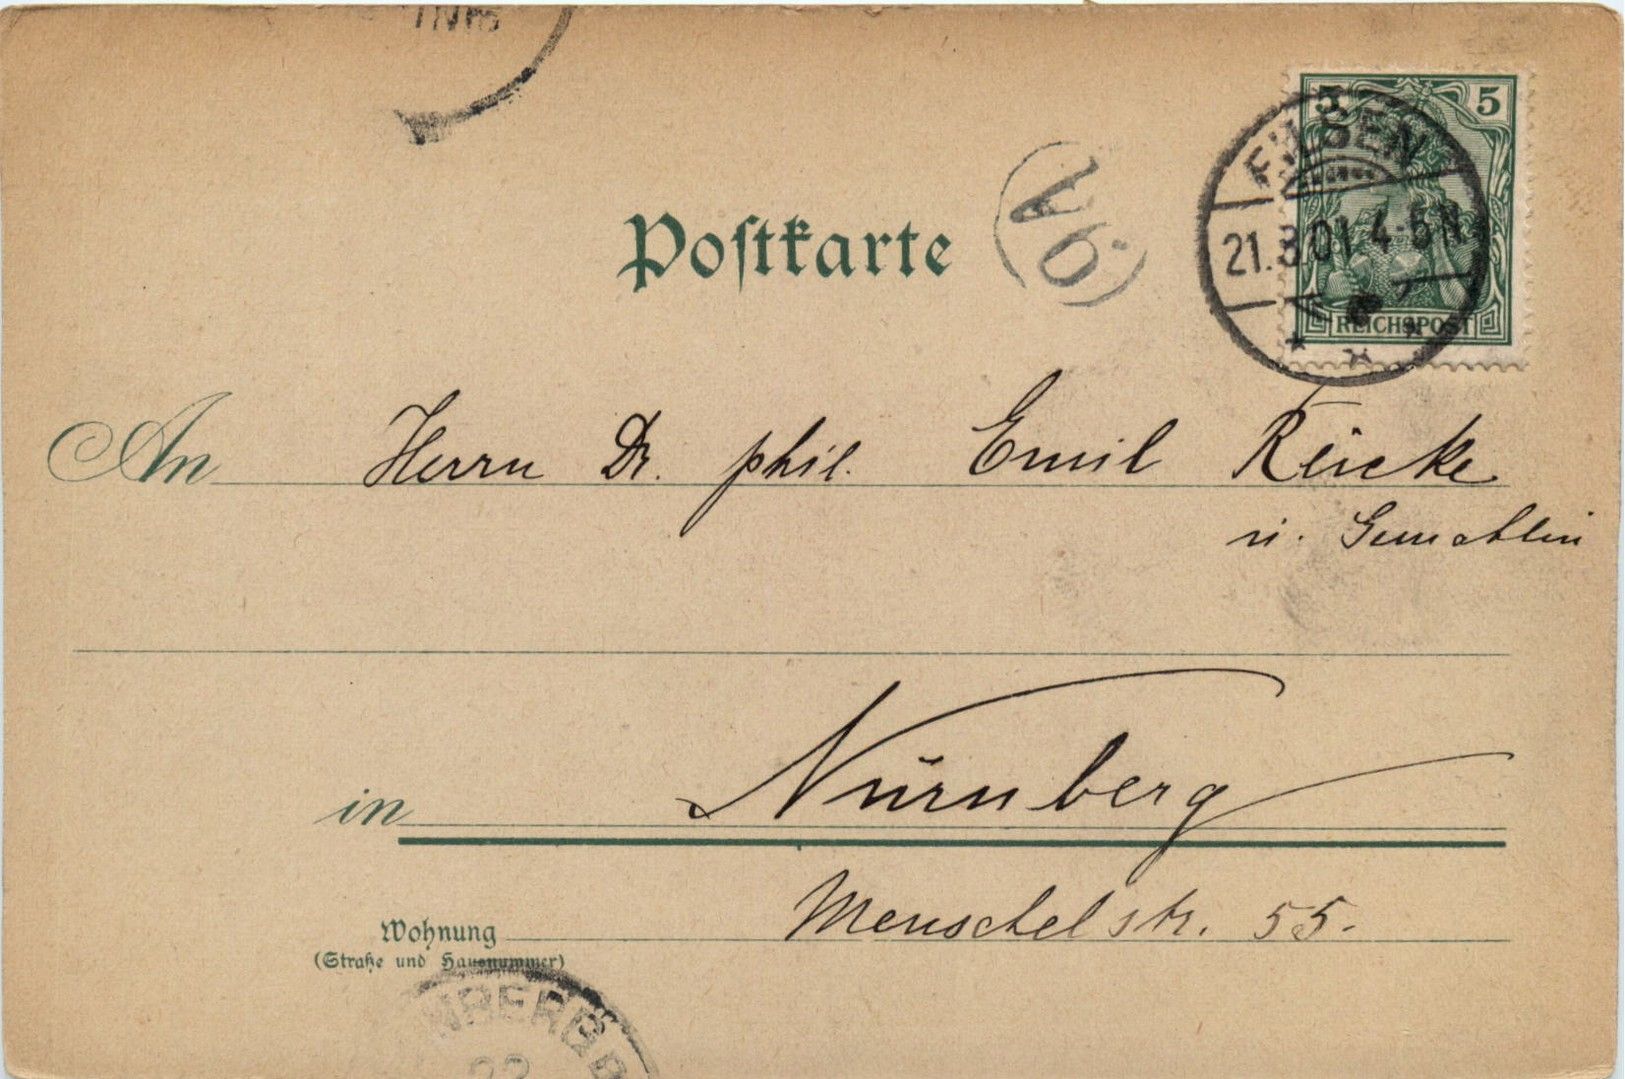 5 5
21.3.01 4-5N
REICHSPOST
Postkarte
An Herrn Dr. phil. Emil Reicke
u. Gemahlin
in Nürnberg
Menschelstr. 55.
Wohnung
(Straße und Hausnummer)
22